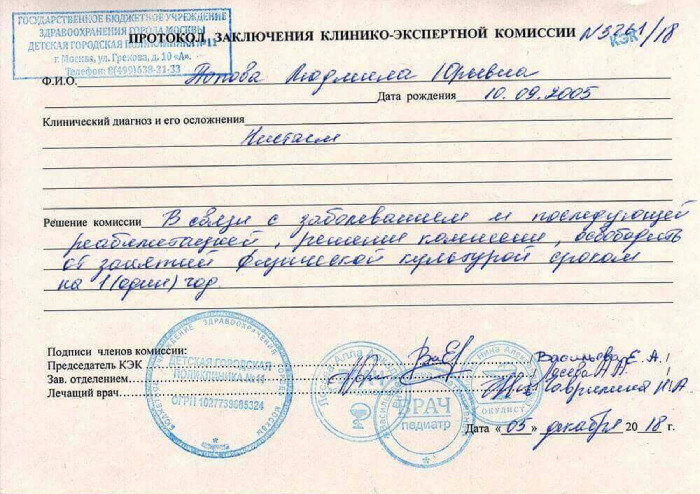 ГОСУДАРСТВЕННОЕ БЮДЖЕТНОЕ УЧРЕЖДЕНИЕ
ЗДРАВООХРАНЕНИЯ ГОРОДА МОСКВЫ
ДЕТСКАЯ ГОРОДСКАЯ ПОЛИКЛИНИКА №11
г. Москва, ул. Грекова, д. 10 «А».
Телефон: 8(499)638-31-33
ПРОТОКОЛ ЗАКЛЮЧЕНИЯ КЛИНИКО-ЭКСПЕРТНОЙ КОМИССИИ N5261/18
КЭК
Ф.И.О. Попова Людмила Юрьевна
Дата рождения 10.09.2005
Клинический диагноз и его осложнения
Нистагм
Решение комиссии В связи с заболеванием и последующей
реабилитацией, решение комиссии, освободить
от занятий физической культурой сроком
на 1 (один) год.
Подписи членов комиссии:
Председатель КЭК Васильева Е. А.
Зав. отделением А.П.
Лечащий врач Гаврилина Н.А.
ДЕТСКАЯ ГОРОДСКАЯ
ПОЛИКЛИНИКА №11
ОГРН 1027739685324
ВРАЧ
педиатр
ОКУЛИСТ
Дата « 03 » декабря 20 18 г.